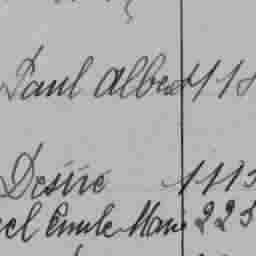 Paul Albert 118
Désiré 1113
el Emile Marie 225